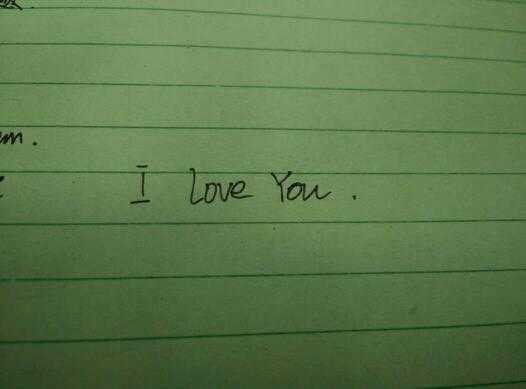 m.
I Love You.